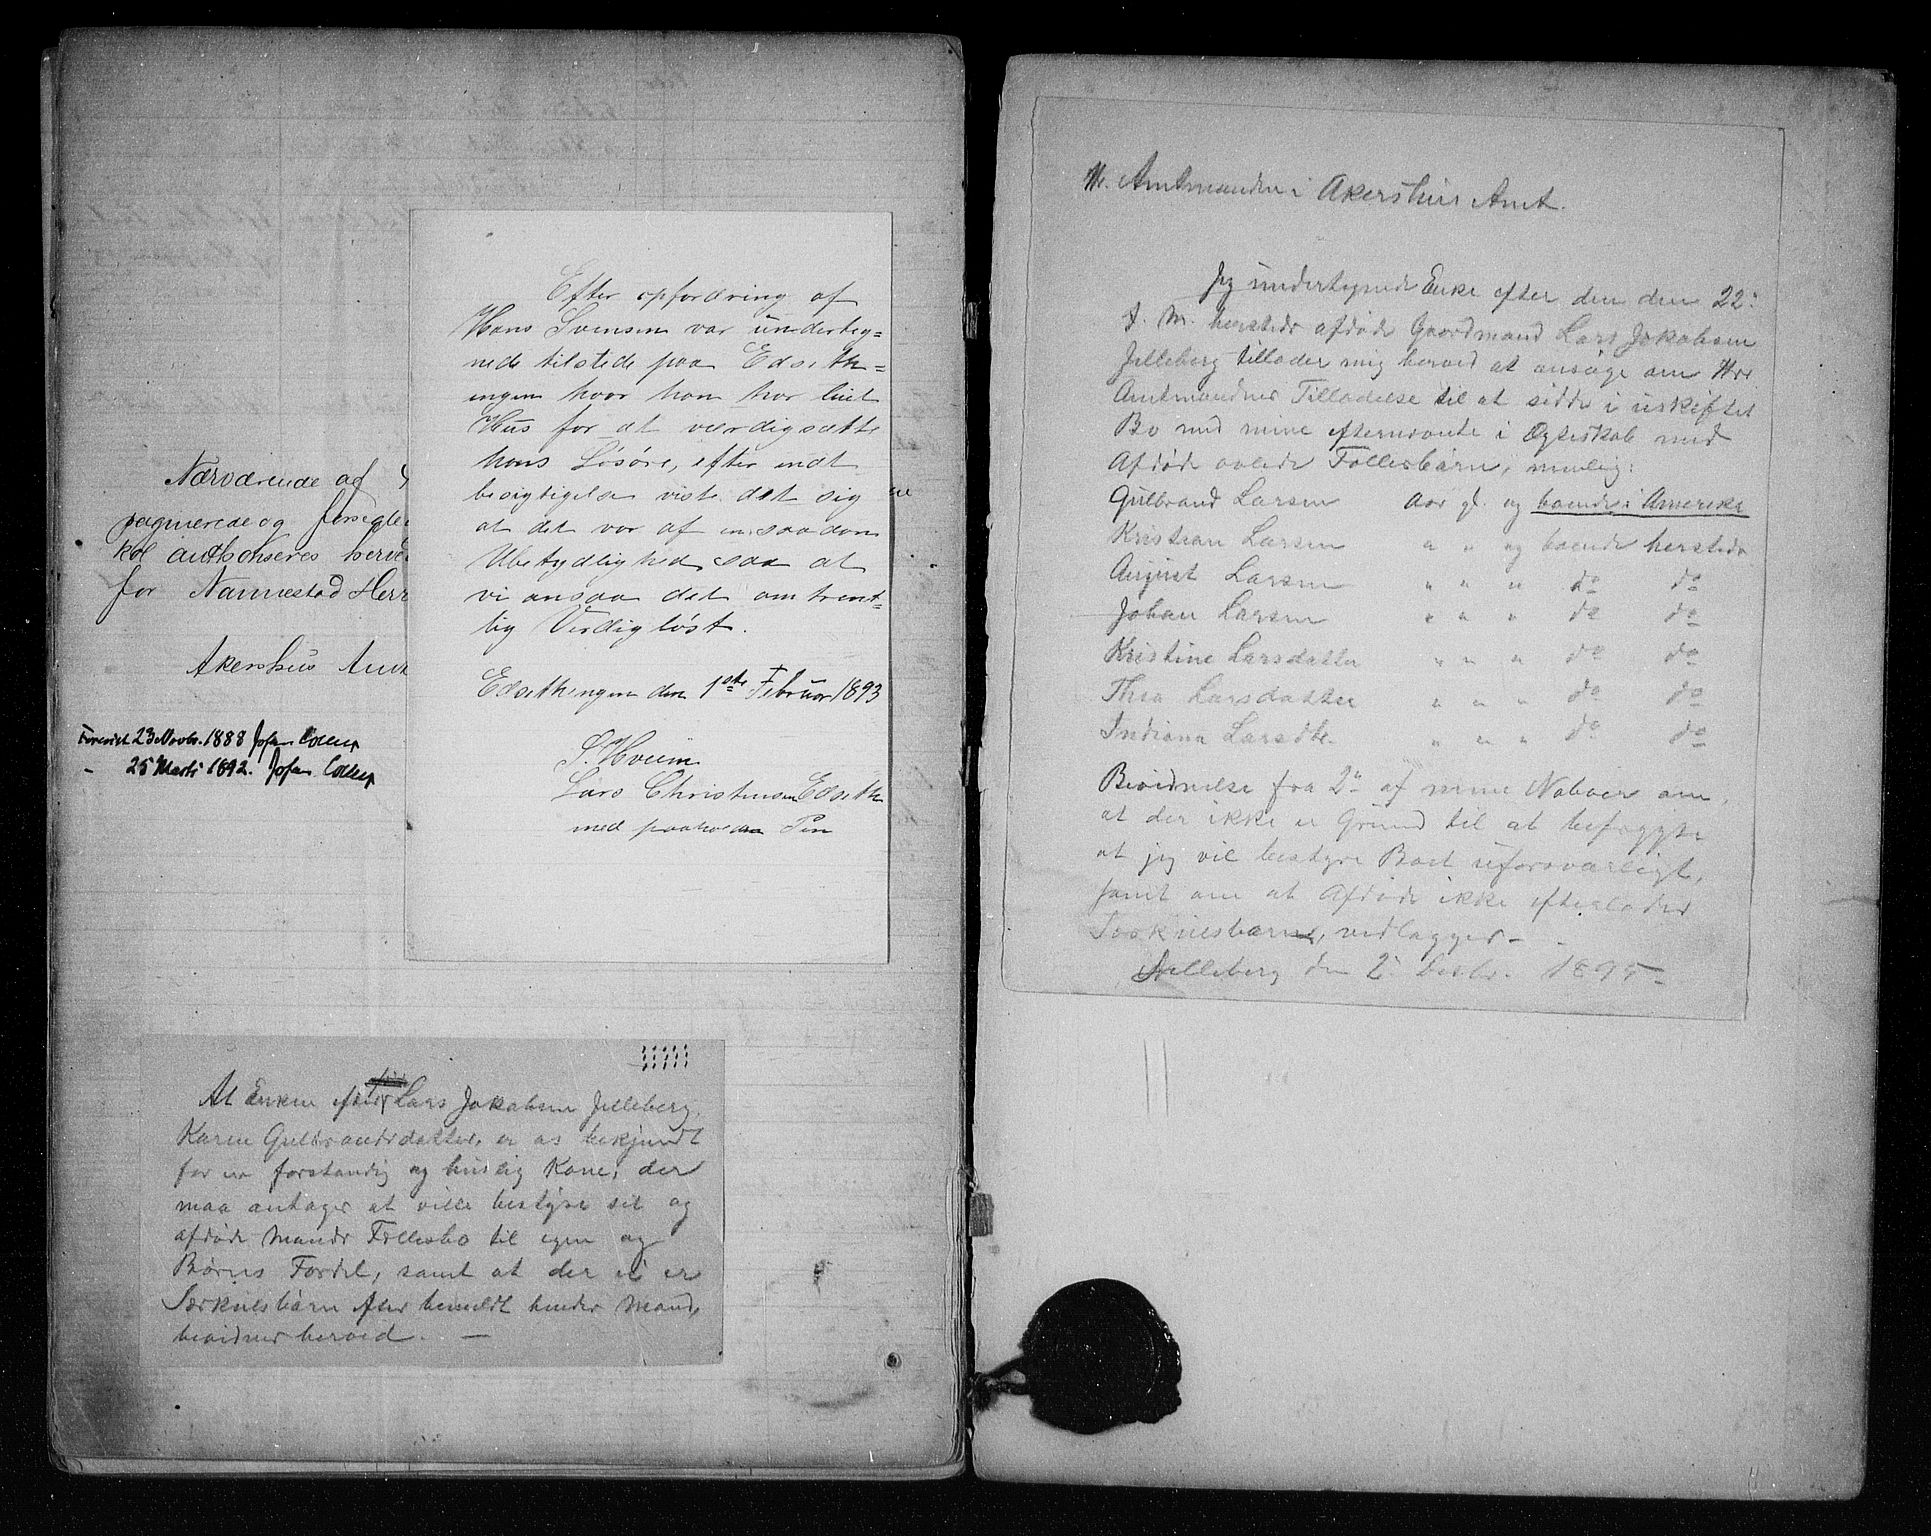 Nærværende af
paginerede og forseglede
kol authoriseres herve
for Nannestad Herr
Akershus Amt
Forevist 23 Novbr. 1888 Johan Collett
" 25 Marts 1892. Johan Collett
Efter opfordring af
Hans Svensen var underteg-
nede tilstede paa Edseth-
ingen hvor han har liiet
Hus for at værdigsætte
hans Løsøre, efter endt
besigtigelse viste det sig
at det var af en saadan
Ubetydlighed saa at
vi ansaa det omtrent-
lig Verdigløst.
Edsethengen den 1ste Februar 1893
S. Hveem
Lars Christensen Edseth
med paaholden Pen
At Enken efter Lars Jakobsen Jelleberg,
Karen Gulbrandsdatter, er os bekjendt
for en forstandig og huslig Kone, der
maa antages at ville bestyre sit og
afdøde Mands Fællesbo til egen og
Børns Fordel, samt at der ei er
Særkuldsbørn efter bemeldt hendes Mand,
bevidnes herved. —
Hr. Amtmanden i Akershus Amt.
Jeg undertegnede Enke efter den den 22'
f. M. hersteds afdøde Gaardmand Lars Jakobsen
Jelleberg tillader mig herved at ansøge om Hrr
Amtmandens Tilladelse til at sidde i uskiftet
Bo med mine efternævnte i Ægteskab med
Afdøde avlede Fællesbørn, nemlig:
Gulbrand Larsen Aar gl. og boende i Amerika
Kristian Larsen " " og boende hersteds
August Larsen " " " do do
Johan Larsen " " " do do
Kristine Larsdatter " " " do do
Thea Larsdatter " " " do do
Indiana Larsdtr. " " " do do
Bevidnelse fra 2de af mine Naboer om,
at der ikke er Grund til at befrygte
at jeg vil bestyre Boet uforsvarligt,
samt om at Afdøde ikke efterlader
Særkuldsbørn, vedlægges —
Jelleberg den 2' 1895 —